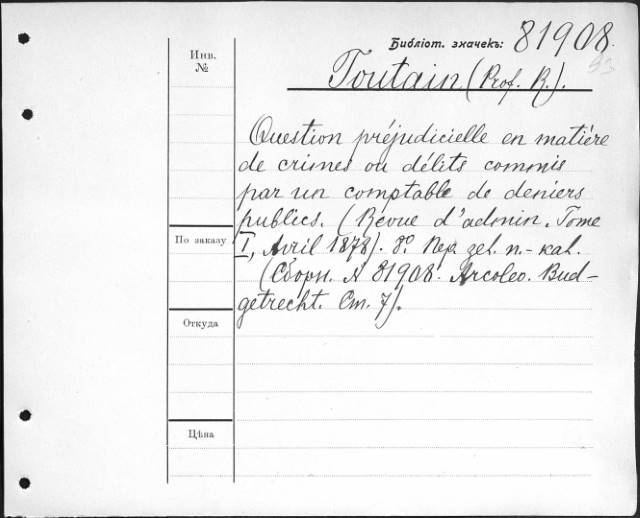 Библіот. значекъ: 81908
53
Инв.
№
Toutain (Prof. R.).
Question préjudicielle en matière
de crimes ou délits commis
par un comptable de deniers
publics. (Revue d'admin. Tome
По заказу
I, Avril 1878). 8º. Пер. zel. п.-kal.
(Сборн. № 81908. Arcoleo. Bud-
getrecht. Ст. 7).
Откуда
Цѣна